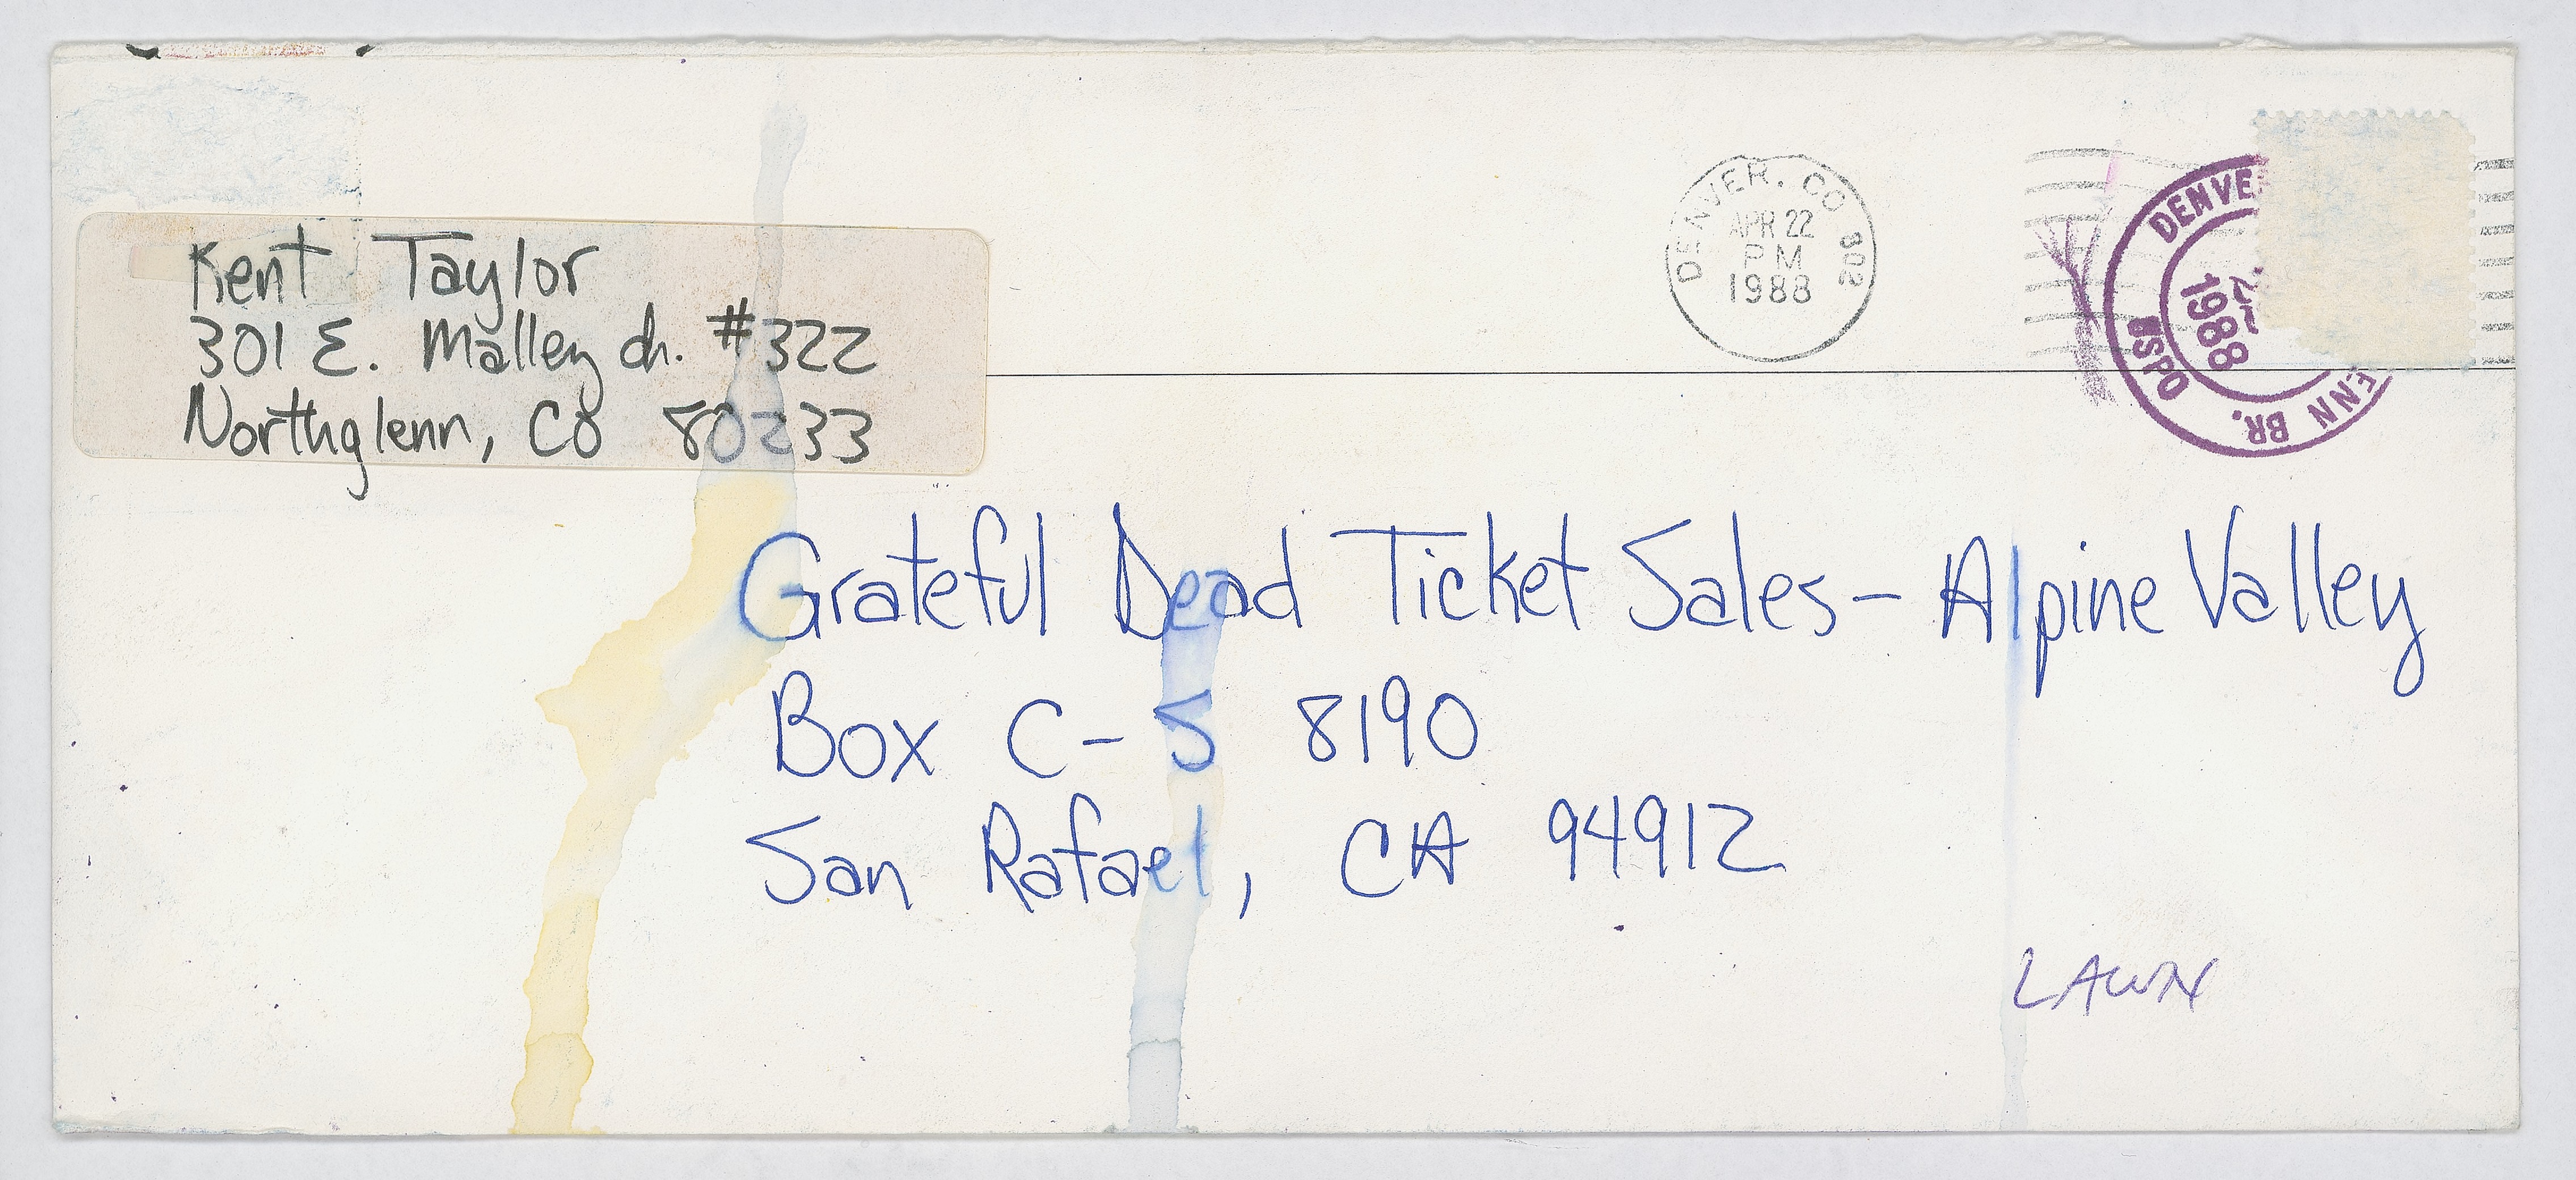 Kent Taylor
301 E. Malley dr. #322
Northglenn, CO 80233
DENVER, CO 802
APR 22
PM
1988
DENVE
1988
USPO
ENN BR.
Grateful Dead Ticket Sales - Alpine Valley
Box C-S 8190
San Rafael, CA 94912
LAWN